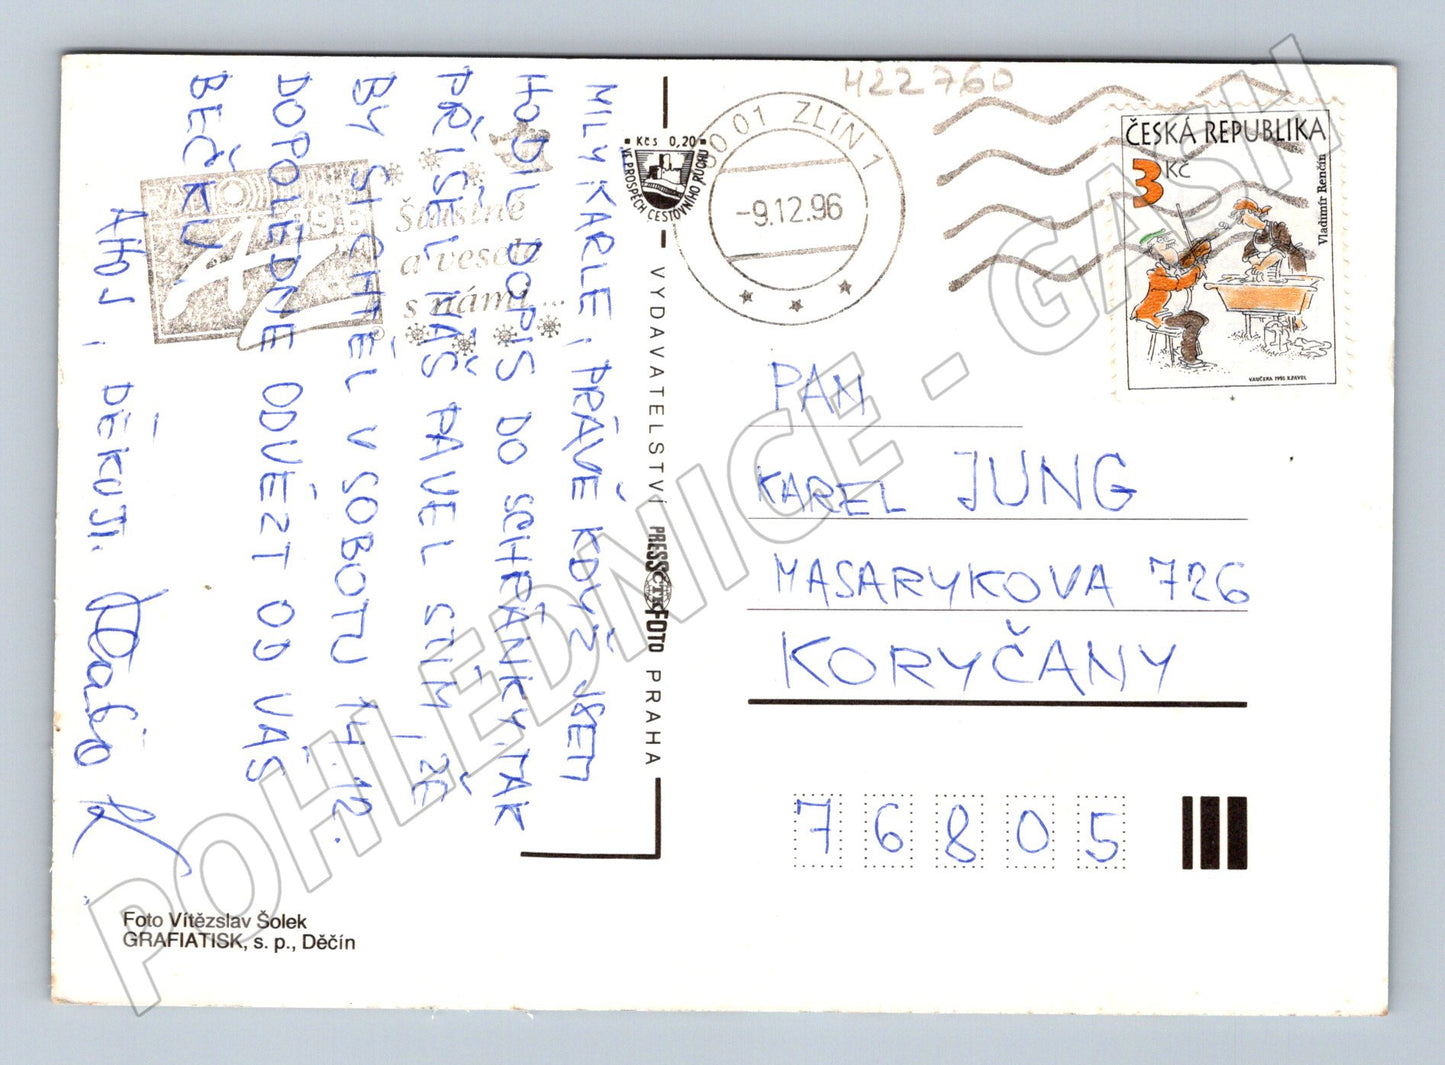 MILÝ KARLE, PRÁVĚ KDYŽ JSEM
HODIL DOPIS DO SCHRÁNKY, TAK
PŘIŠEL NÁŠ PAVEL STÍM, ŽE
BY SI CHTĚL V SOBOTU 14.12.
DOPOLEDNE ODVÉZT OD VÁS
BEČKU.
AHOJ, DĚKUJI.
H22760
Kčs 0,20
VE PROSPĚCH CESTOVNÍHO RUCHU
VYDAVATELSTVÍ PRESSFOTO PRAHA
ČTK
01 ZLÍN 1
-9.12.96
ČESKÁ REPUBLIKA
3 Kč
Vladimír Renčín
VANČURA 1995 K.PAVEL
1995
Šťastně
a vesele
s námi...
PAN
KAREL JUNG
MASARYKOVA 726
KORYČANY
76805
Foto Vítězslav Šolek
GRAFIATISK, s. p., Děčín
POHLEDNICE - GASH